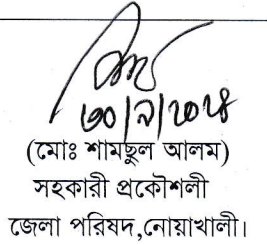 ৩০/৯/২০২৪
(মোঃ শামছুল আলম)
সহকারী প্রকৌশলী
জেলা পরিষদ,নোয়াখালী।